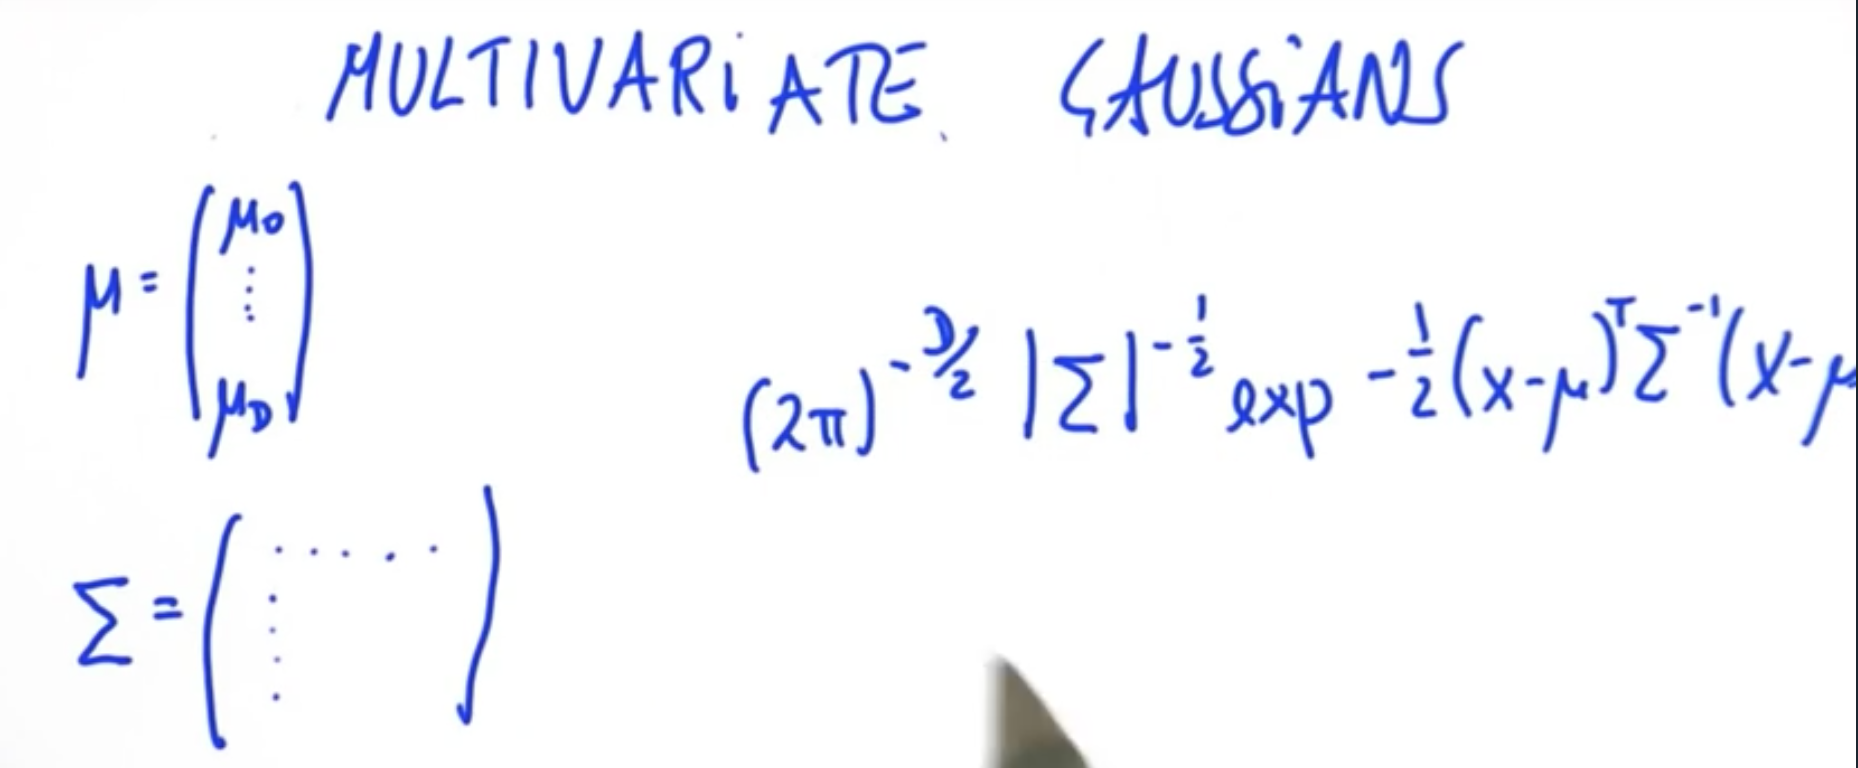 MULTIVARIATE GAUSSIANS
μ = (μ0 ⋮ μD)
(2π)^(-D/2) |Σ|^(-1/2) exp -1/2 (x-μ)^T Σ^-1 (x-μ
Σ = ( ..... ⋮ )